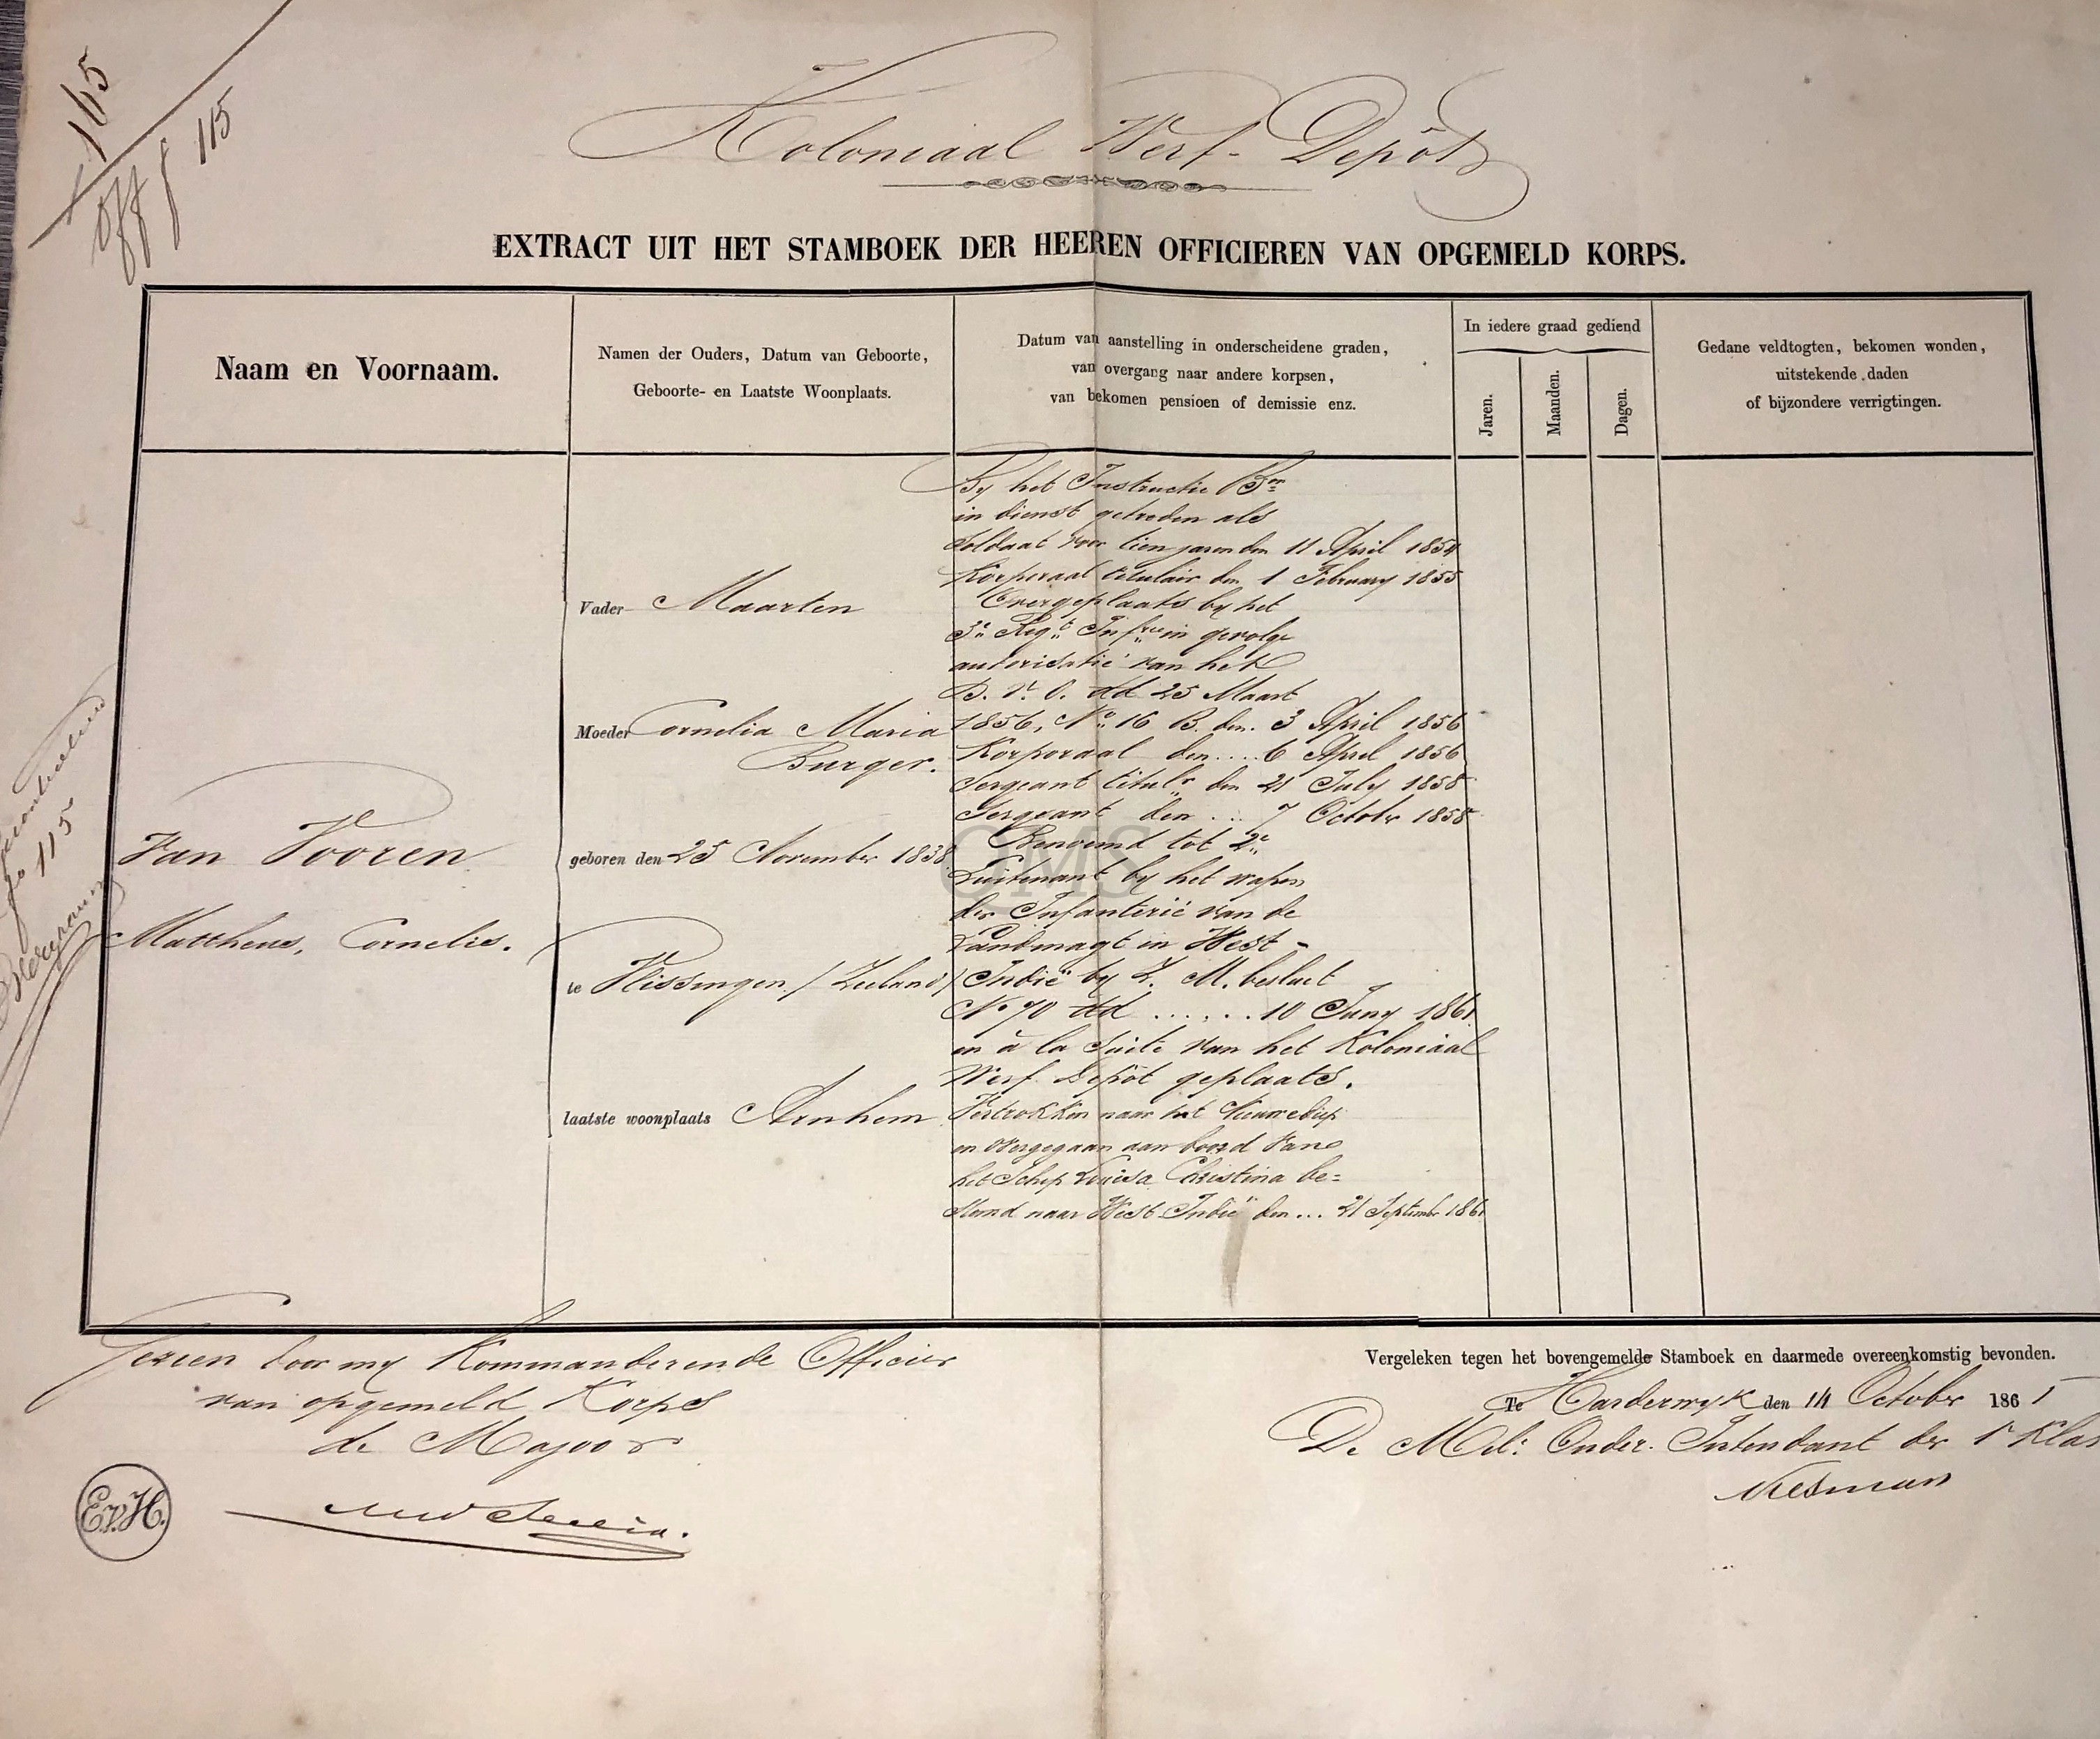 115
off f 115
Koloniaal Werf-Depôt
EXTRACT UIT HET STAMBOEK DER HEEREN OFFICIEREN VAN OPGEMELD KORPS.
Naam en Voornaam.
Namen der Ouders, Datum van Geboorte,
Geboorte- en Laatste Woonplaats.
Datum van aanstelling in onderscheidene graden,
van overgang naar andere korpsen,
van bekomen pensioen of demissie enz.
In iedere graad gediend
Jaren.
Maanden.
Dagen.
Gedane veldtogten, bekomen wonden,
uitstekende daden
of bijzondere verrigtingen.
Van Vooren
Mattheus, Cornelis.
Vader Maarten
Moeder Cornelia Maria
Burger.
geboren den 25 November 1838
te Vlissingen /Zeeland/
laatste woonplaats Arnhem
By het Instructie Bon
in dienst getreden als
Soldaat voor tien jaren den 11 April 1854
Korporaal titulair den 1 February 1855
Overgeplaatst by het
3e Regt Infie in gevolge
autorisatie van het
D. v. O. dd 25 Maart
1856, No 16 B. den. 3 April 1856
Korporaal den .... 6 April 1856
Sergeant titulr den 21 July 1858
Sergeant den ... 7 Octobr 1858
Benoemd tot 2e
Luitenant by het wapen
der Infanterie van de
Landmagt in West-
Indië by Z. M. besluit
No 70 dd ...... 10 Juny 1861
en à la Suite van het Koloniaal
Werf Depôt geplaatst.
Vertrokken naar het Nieuwediep
en overgegaan aan boord van
het Schip Louisa Christina be=
stemd naar West Indië den ... 21 September 1861
115
CMS
Gezien door my Kommanderende Officier
van opgemeld Korps
de Majoor
E.v.H.
Vergeleken tegen het bovengemelde Stamboek en daarmede overeenkomstig bevonden.
Te Harderwyk den 14 October 1861
De Mil: Onder-Intendant der 1e Klas